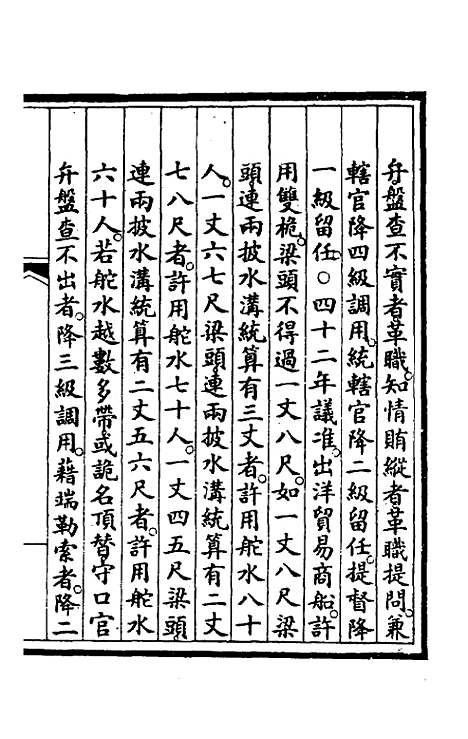 弁盤查不實者。革職。知情賄縱者革職提問。兼
轄官降四級調用。統轄官降二級留任。提督降
一級留任。○四十二年議准。出洋貿易商船。許
用雙桅。梁頭不得過一丈八尺。如一丈八尺梁
頭。連兩披水溝統算有三丈者。許用舵水八十
人。一丈六七尺梁頭。連兩披水溝統算有二丈
七八尺者。許用舵水七十人。一丈四五尺梁頭
連兩披水溝統算有二丈五六尺者。許用舵水
六十人。若舵水越數多帶。或詭名頂替。守口官
弁盤查不出者。降三級調用。藉端勒索者。降二